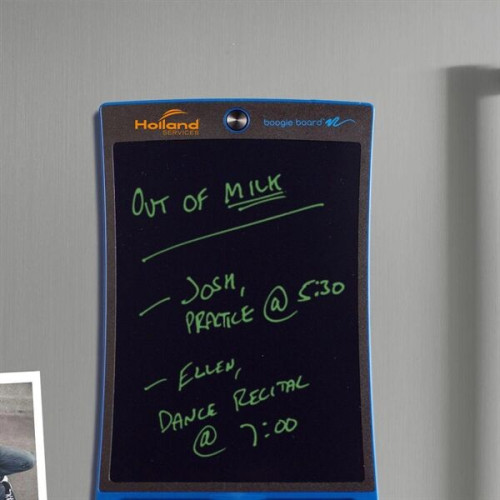 Holland
SERVICES
boogie board
OUT OF MILK
— JOSH,
PRACTICE @ 5:30
— ELLEN,
DANCE RECITAL
@ 7:00